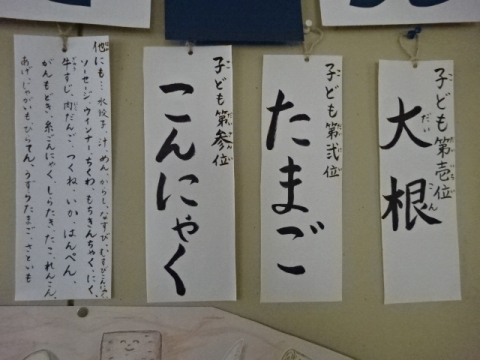 子ども第壱位
大根
だいこん
子ども第弐位
たまご
子ども第参位
こんにゃく
他にも…水餃子、汁、めん、からし、なすび、むすびこんぶ、
ソーセージ、ウィンナー、ちくわ、もちきんちゃく、にく、
牛すじ、肉だんご、つくね、いか、はんぺん、
がんもどき、糸こんにゃく、しらたき、たこ、れんこん、
あげ、じゃがいも、ひらてん、うずらたまご、さといも